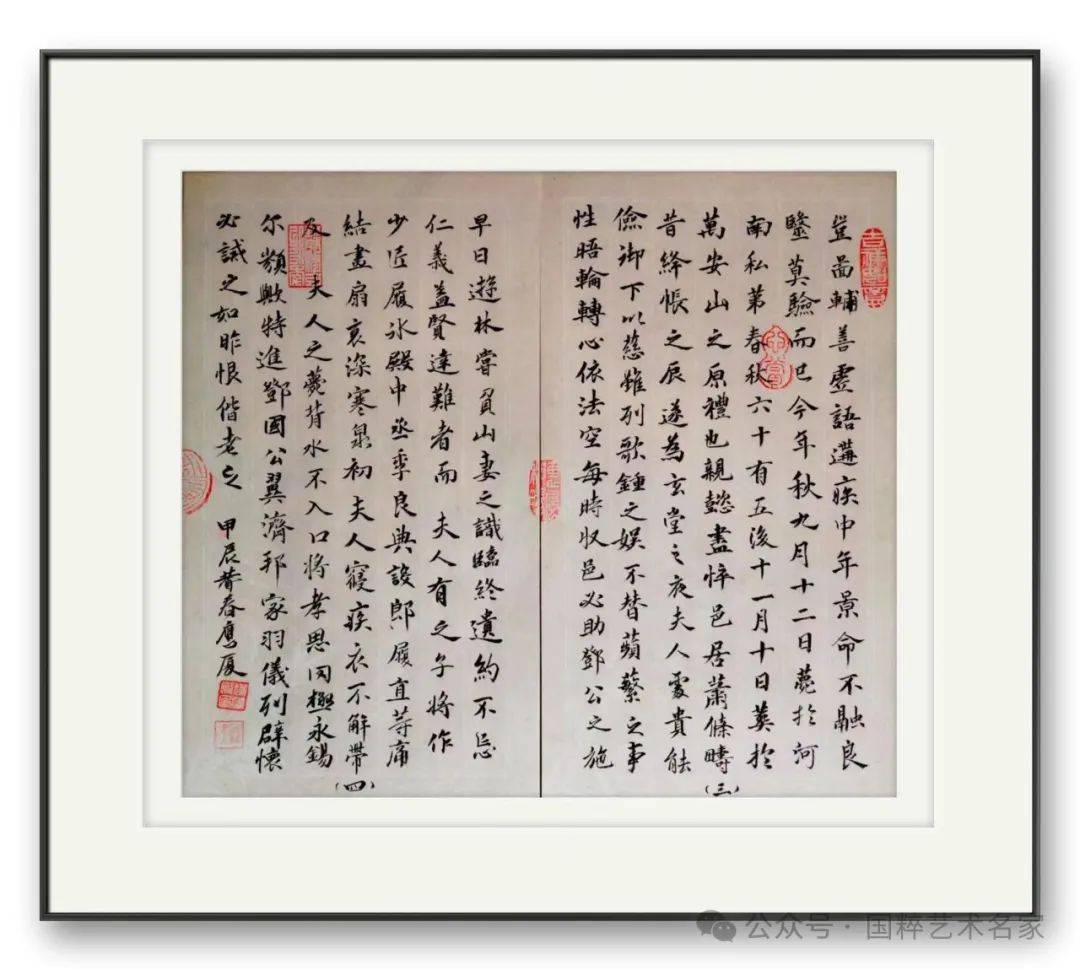 豈啚輔善虛語遘疾中年景命不融良
毉莫驗而已今年秋九月十二日薨於河
南私第春秋六十有五後十一月十日葬於
萬安山之原禮也親懿盡悴邑居蕭條疇
昔絳帳之辰遂為玄堂之夜夫人處貴能
儉御下以慈雖列歌鍾之娛不替蘋蘩之事
性晤輪轉心依法空每時收邑必助鄧公之施
(三)
早日遊林嘗負山妻之識臨終遺約不忘
仁義蓋賢達難者而 夫人有之子將作
少匠履冰殿中丞季良典設郎履直等痛
結畫扇哀深寒泉初夫人寢疾衣不解帶
及 夫人之薨背水不入口將孝思罔極永錫
尔類歟特進鄧國公翼濟邦家羽儀列辟懷
必誡之如昨恨偕老之 甲辰暮春應厦
(四)
公众号·国粹艺术名家